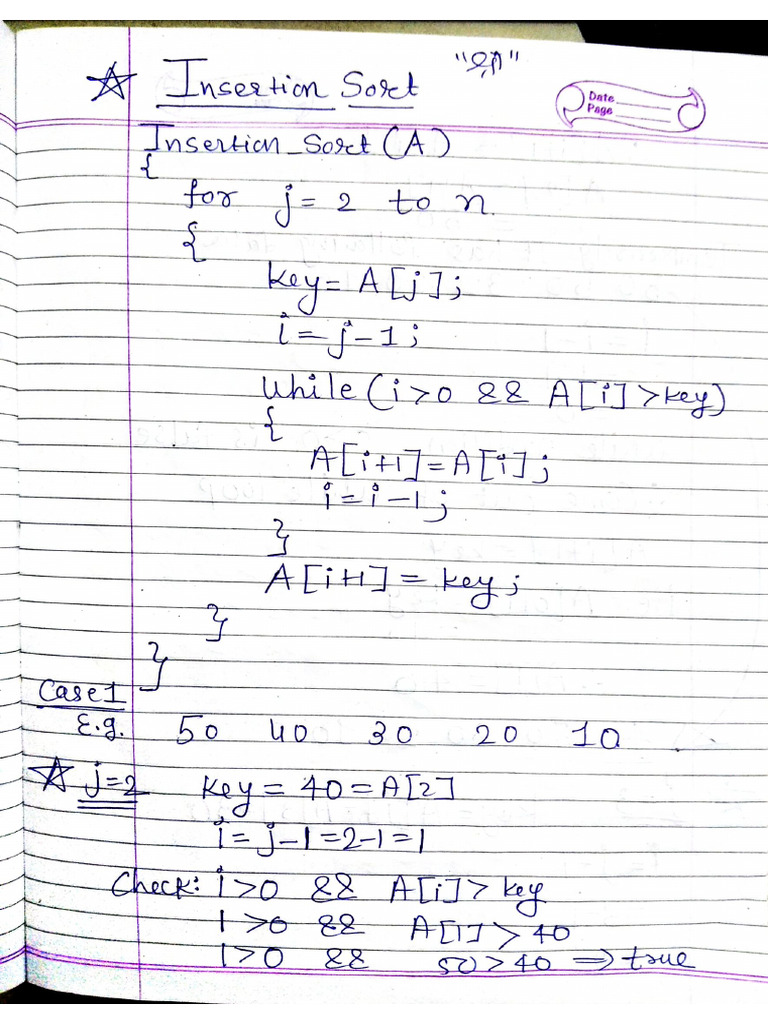 ☆ Insertion Sort
Date
Page
Insertion_Sort (A)
{
for j = 2 to n.
{
key = A[j];
i = j - 1;
While (i > 0 && A[i] > key)
{
A[i+1] = A[i];
i = i - 1;
}
A[i+1] = key;
}
}
Case 1
E.g. 50 40 30 20 10
☆ j = 2 key = 40 = A[2]
i = j - 1 = 2 - 1 = 1
Check: i > 0 && A[i] > key
1 > 0 && A[1] > 40
1 > 0 && 50 > 40 ⇒ true